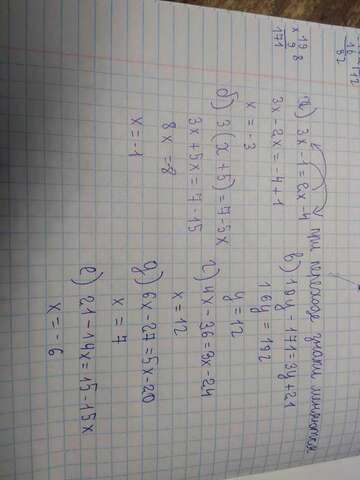 19
x 9
171
8
а) 3x-1=2x-4
3x-2x=-4+1
x=-3
б) 3(x+5)=7-5x
3x+5x=7-15
8x=-8
x=-1
при переходе знаки меняются
в) 19y-171=3y+21
16y=192
y=12
г) 4x-36=3x-24
x=12
д) 6x-27=5x-20
x=7
е) 21-14x=15-15x
x=-6